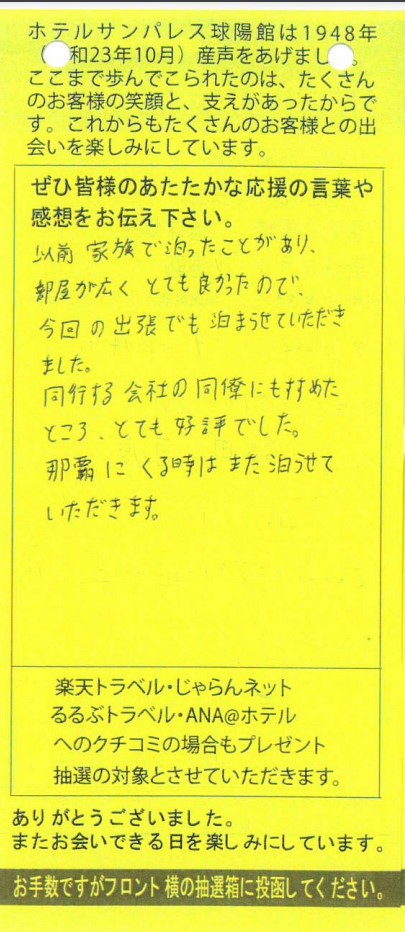 ホテルサンパレス球陽館は1948年
(和23年10月)産声をあげまし。
ここまで歩んでこられたのは、たくさん
のお客様の笑顔と、支えがあったからで
す。これからもたくさんのお客様との出
会いを楽しみにしています。
ぜひ皆様のあたたかな応援の言葉や
感想をお伝え下さい。
以前 家族で泊ったことがあり、
部屋が広く とても良かったので、
今回の出張でも 泊まらせていただき
ました。
同行する会社の同僚にもすすめた
ところ、とても好評でした。
那覇に くる時は また泊らせて
いただきます。
楽天トラベル・じゃらんネット
るるぶトラベル・ANA@ホテル
へのクチコミの場合もプレゼント
抽選の対象とさせていただきます。
ありがとうございました。
またお会いできる日を楽しみにしています。
お手数ですがフロント横の抽選箱に投函してください。